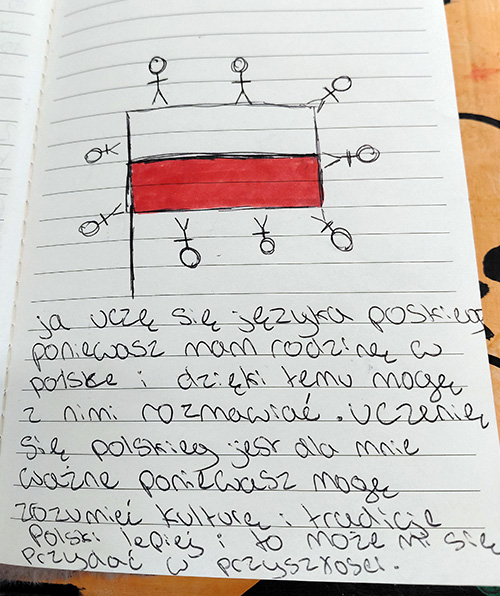 ja uczę się języka poskieg
poniewasz mam rodzinę w
polske i dzięki temu mogę
z nimi rozmawiać. uczenię
się polskieg jest dla mnie
ważne poniewasz mogę
zrozumieć kulturę i tradicję
polski lepiej i to może mi się
przydać w przyszłosci.